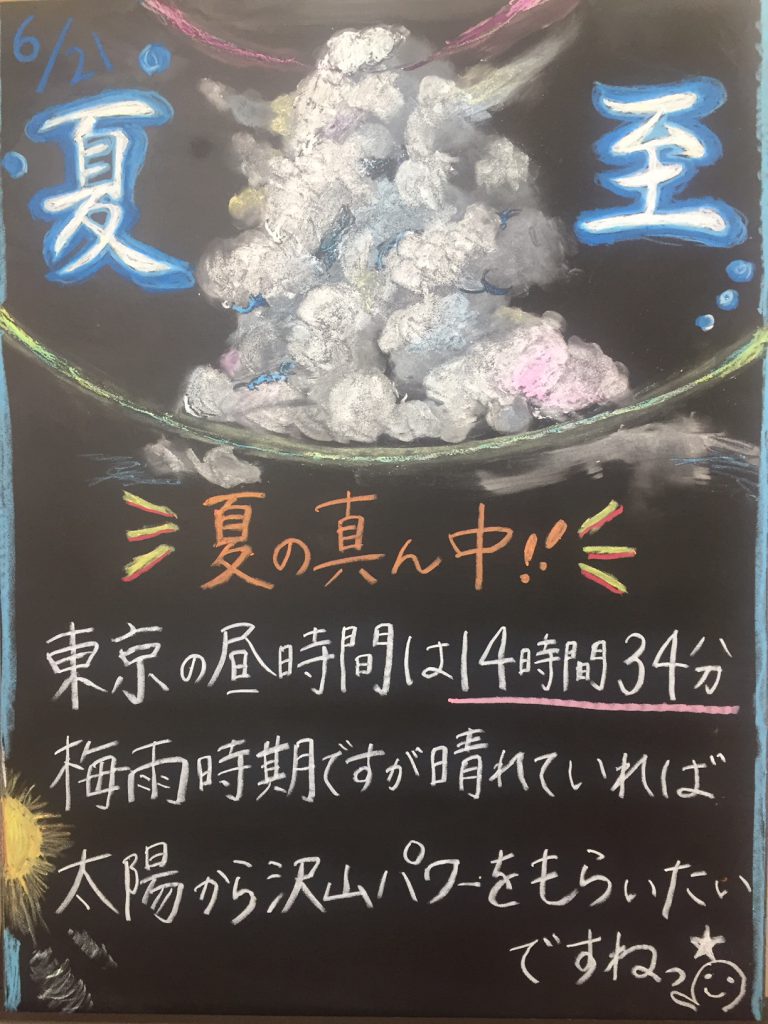 6/21
夏至
夏の真ん中!!
東京の昼時間は14時間34分
梅雨時期ですが晴れていれば
太陽から沢山パワーをもらいたい
ですねっ